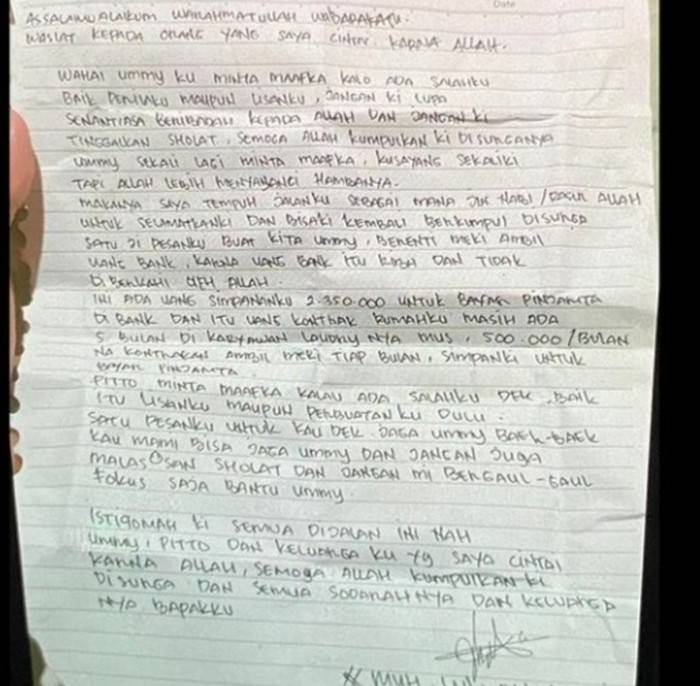 Date
ASSALAMUALAIKUM WARAHMATULLAH WABARAKATU.
WASIAT KEPADA ORANG YANG SAYA CINTAI KARNA ALLAH.
WAHAI UMMY KU MINTA MAAFKA KALO ADA SALAHKU
BAIK PERILAKU MAUPUN LISANKU, JANGAN KI LUPA
SENANTIASA BERIBADAH KEPADA ALLAH DAN JANGAN KI
TINGGALKAN SHOLAT, SEMOGA ALLAH KUMPULKAN KI DISURGANYA
UMMY SEKALI LAGI MINTA MAAFKA, KUSAYANG SEKALIKI
TAPI ALLAH LEBIH MENYAYANGI HAMBANYA.
MAKANYA SAYA TEMPUH JALANKU SEBAGAI MANA NABI / RASUL ALLAH
UNTUK SELAMATKANKI DAN BISAKI KEMBALI BERKUMPUL DISURGA
SATU JI PESANKU BUAT KITA UMMY, BERENTI MEKI AMBIL
UANG BANK, KARNA UANG BANK ITU RIBA DAN TIDAK
DI BERKAHI OLEH ALLAH.
INI ADA UANG SIMPANANKU 2.350.000 UNTUK BAYAR PINJAMTA
DI BANK DAN ITU UANG KONTRAK RUMAHKU MASIH ADA
5 BULAN DI KARYAWAN NYA MUS, 500.000/BULAN
NA KONTRAKAN AMBIL MEKI TIAP BULAN, SIMPANKI UNTUK
BAYAR PINJAMTA
PITTO MINTA MAAFKA KALAU ADA SALAHKU DEK, BAIK
ITU LISANKU MAUPUN PERBUATAN KU DULU.
SATU PESANKU UNTUK KAU DEK JAGA UMMY BAEK-BAEK
KAU MAMI BISA JAGA UMMY DAN JANGAN JUGA
MALAS SHOLAT DAN JANGAN MI BERGAUL-GAUL
FOKUS SAJA BANTU UMMY.
ISTIQOMAH KI SEMUA DIJALAN INI NAH
UMMY, PITTO DAN KELUARGA KU YG SAYA CINTAI
KARNA ALLAH, SEMOGA ALLAH KUMPULKAN KI
DISURGA DAN SEMUA SODARAH NYA DAN KELUARGA
NYA BAPAKKU
MUH.